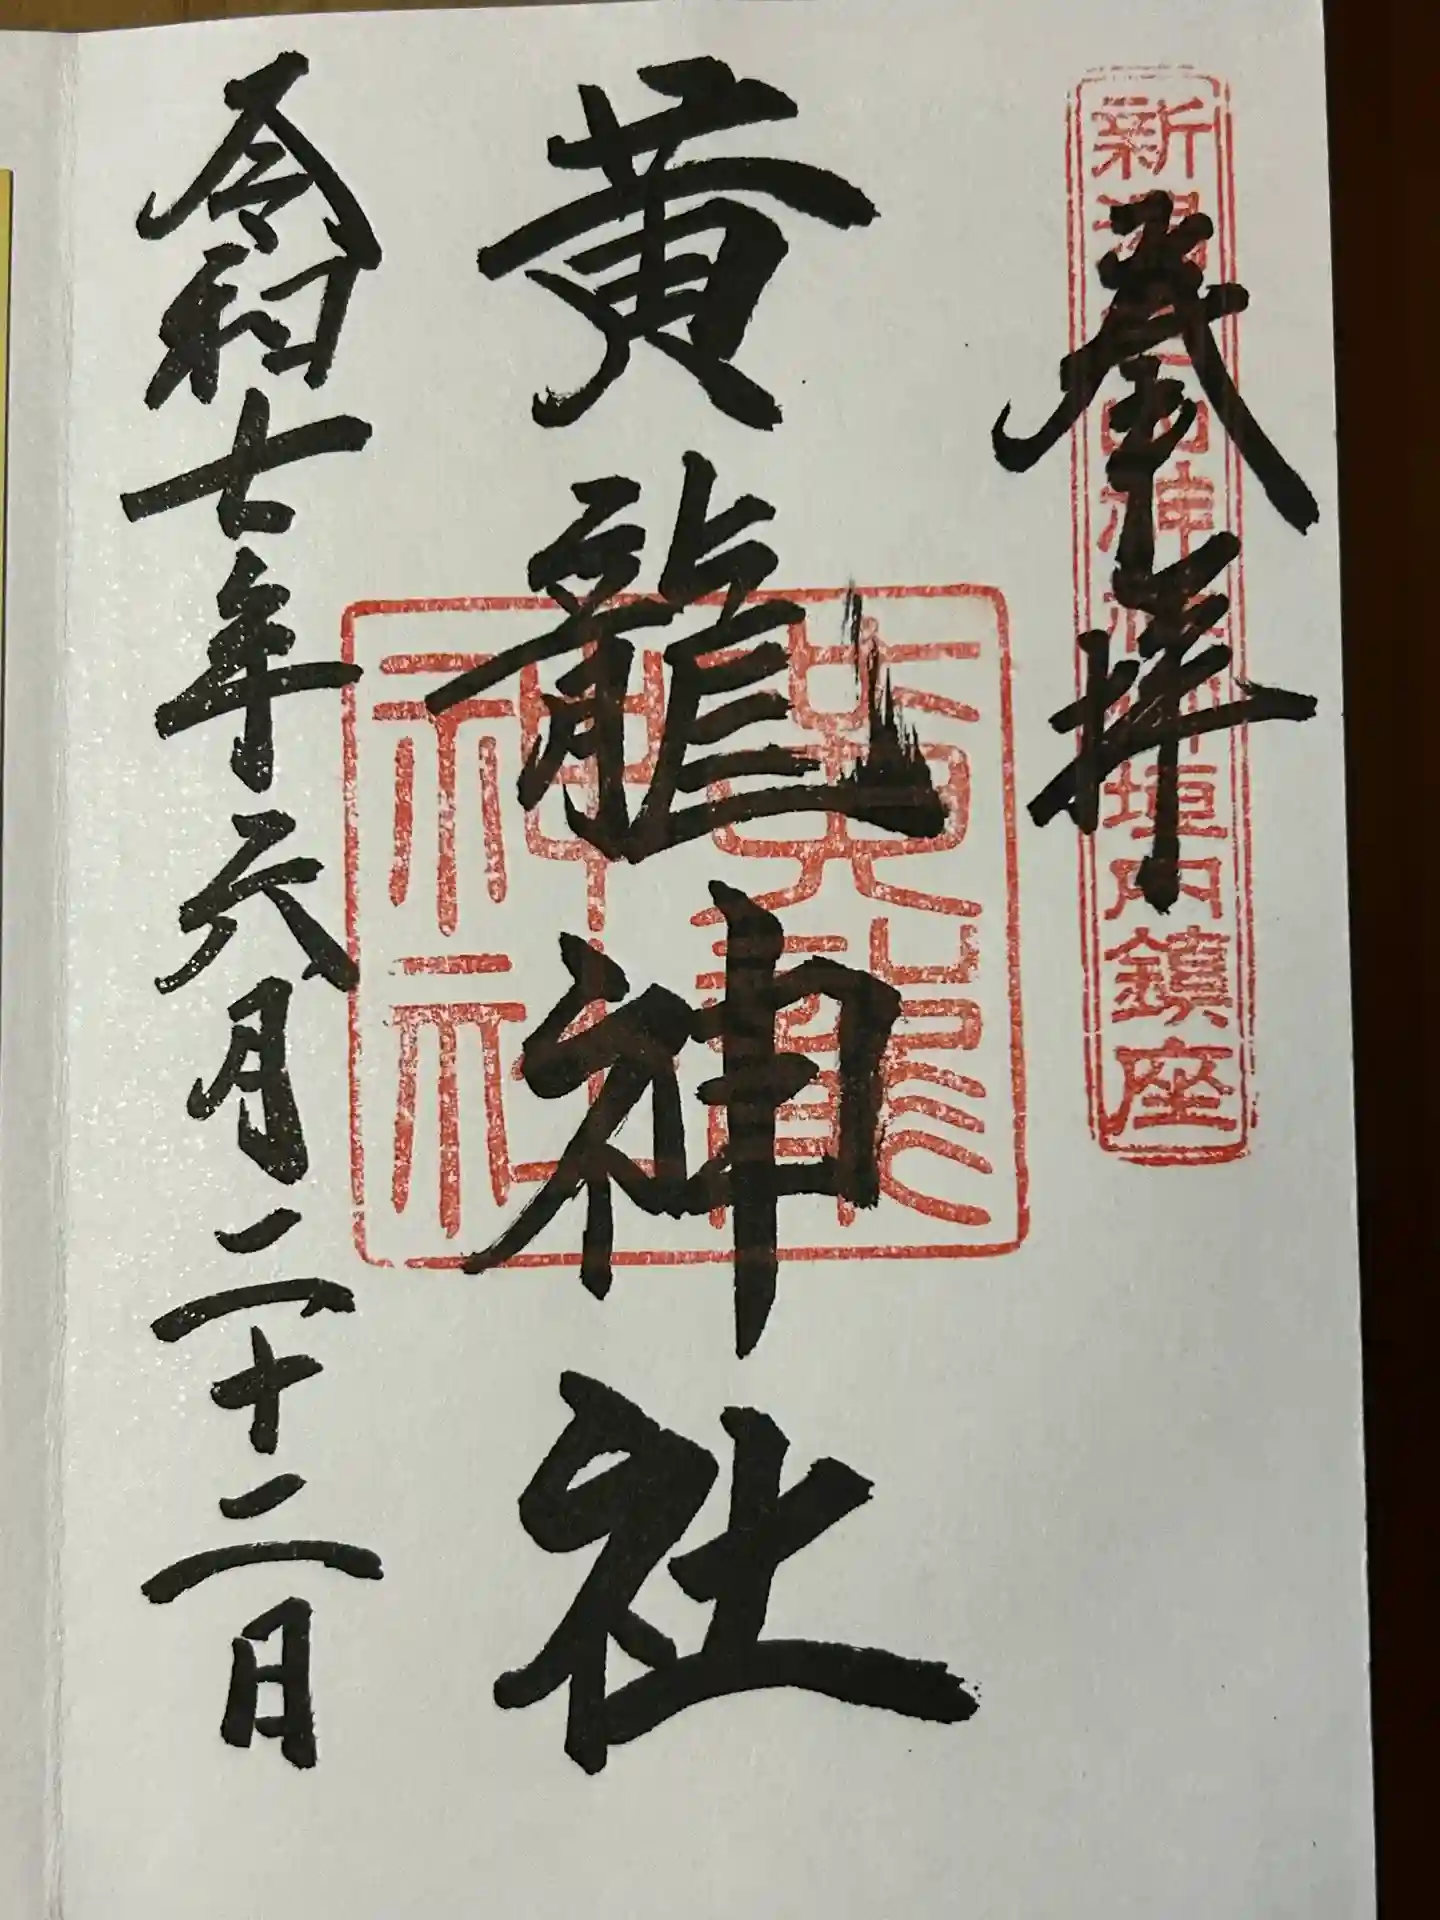 奉拝
新潟白山神社神垣内鎮座
黄龍神社
黄龍神社
令和七年六月二十二日